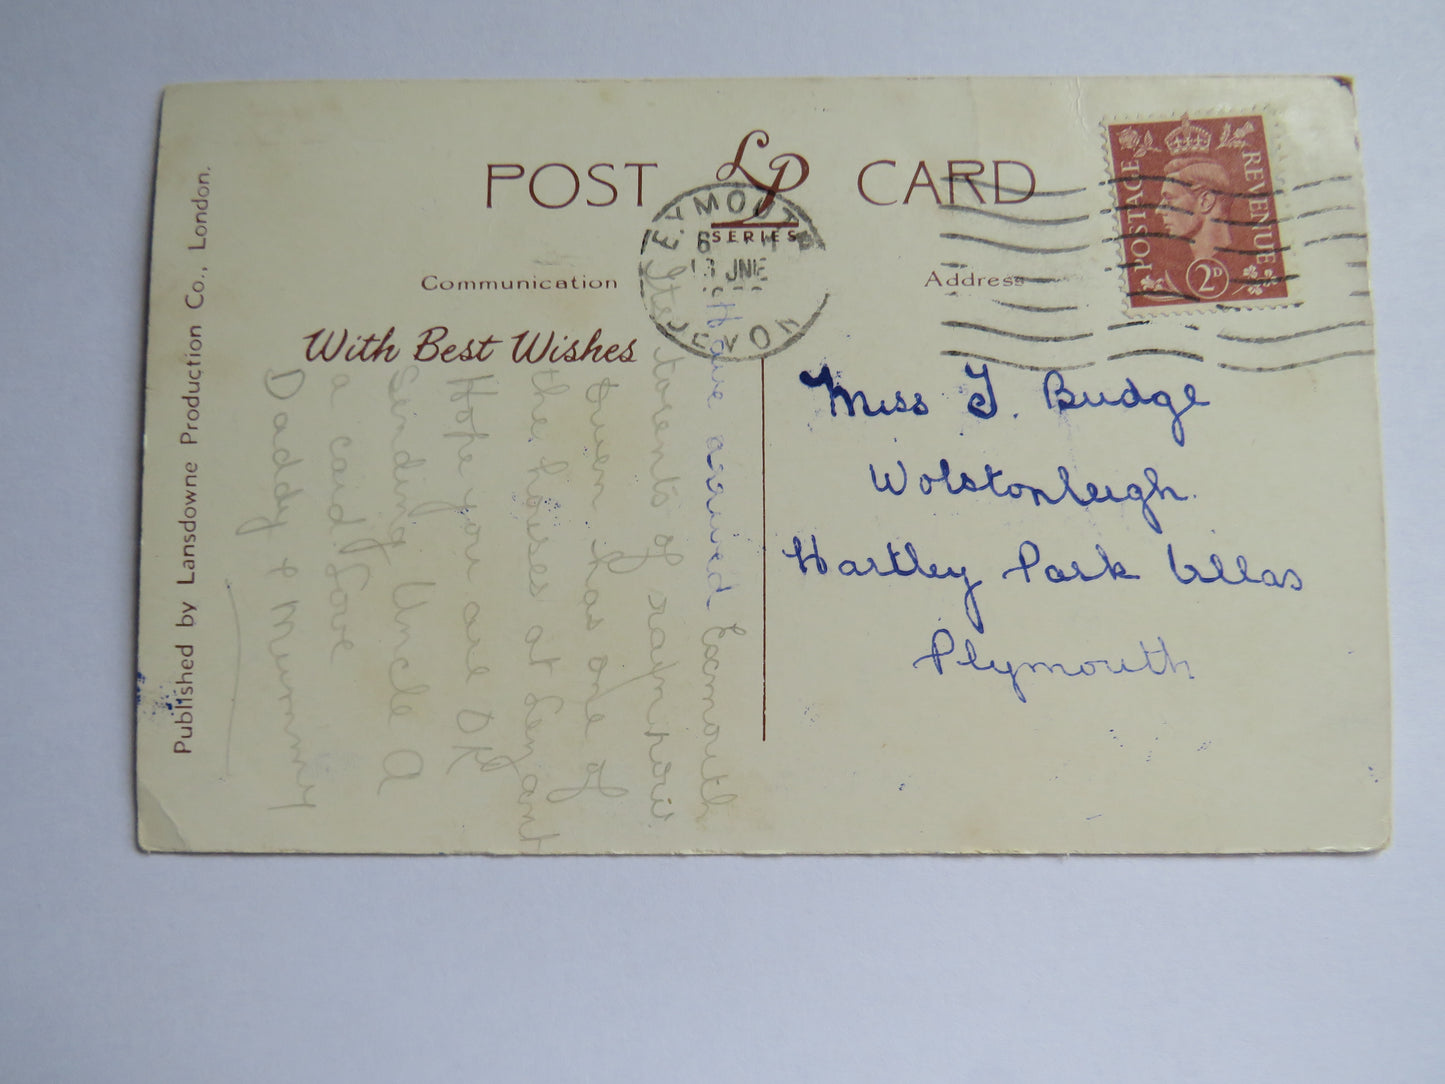 POST LP CARD
SERIES
Communication
Address
With Best Wishes
Published by Lansdowne Production Co., London.
POSTAGE REVENUE
2D
EYMOUTH
6
13 JNE
DEVON
Miss J. Budge
Wolstonleigh.
Hartley Park Villas
Plymouth
Have arrived Exmouth
Its torents of rain, how
Gwen has one of
the houses at
Hope you are OK
Sending Uncle A
a card Love
Daddy & Mummy